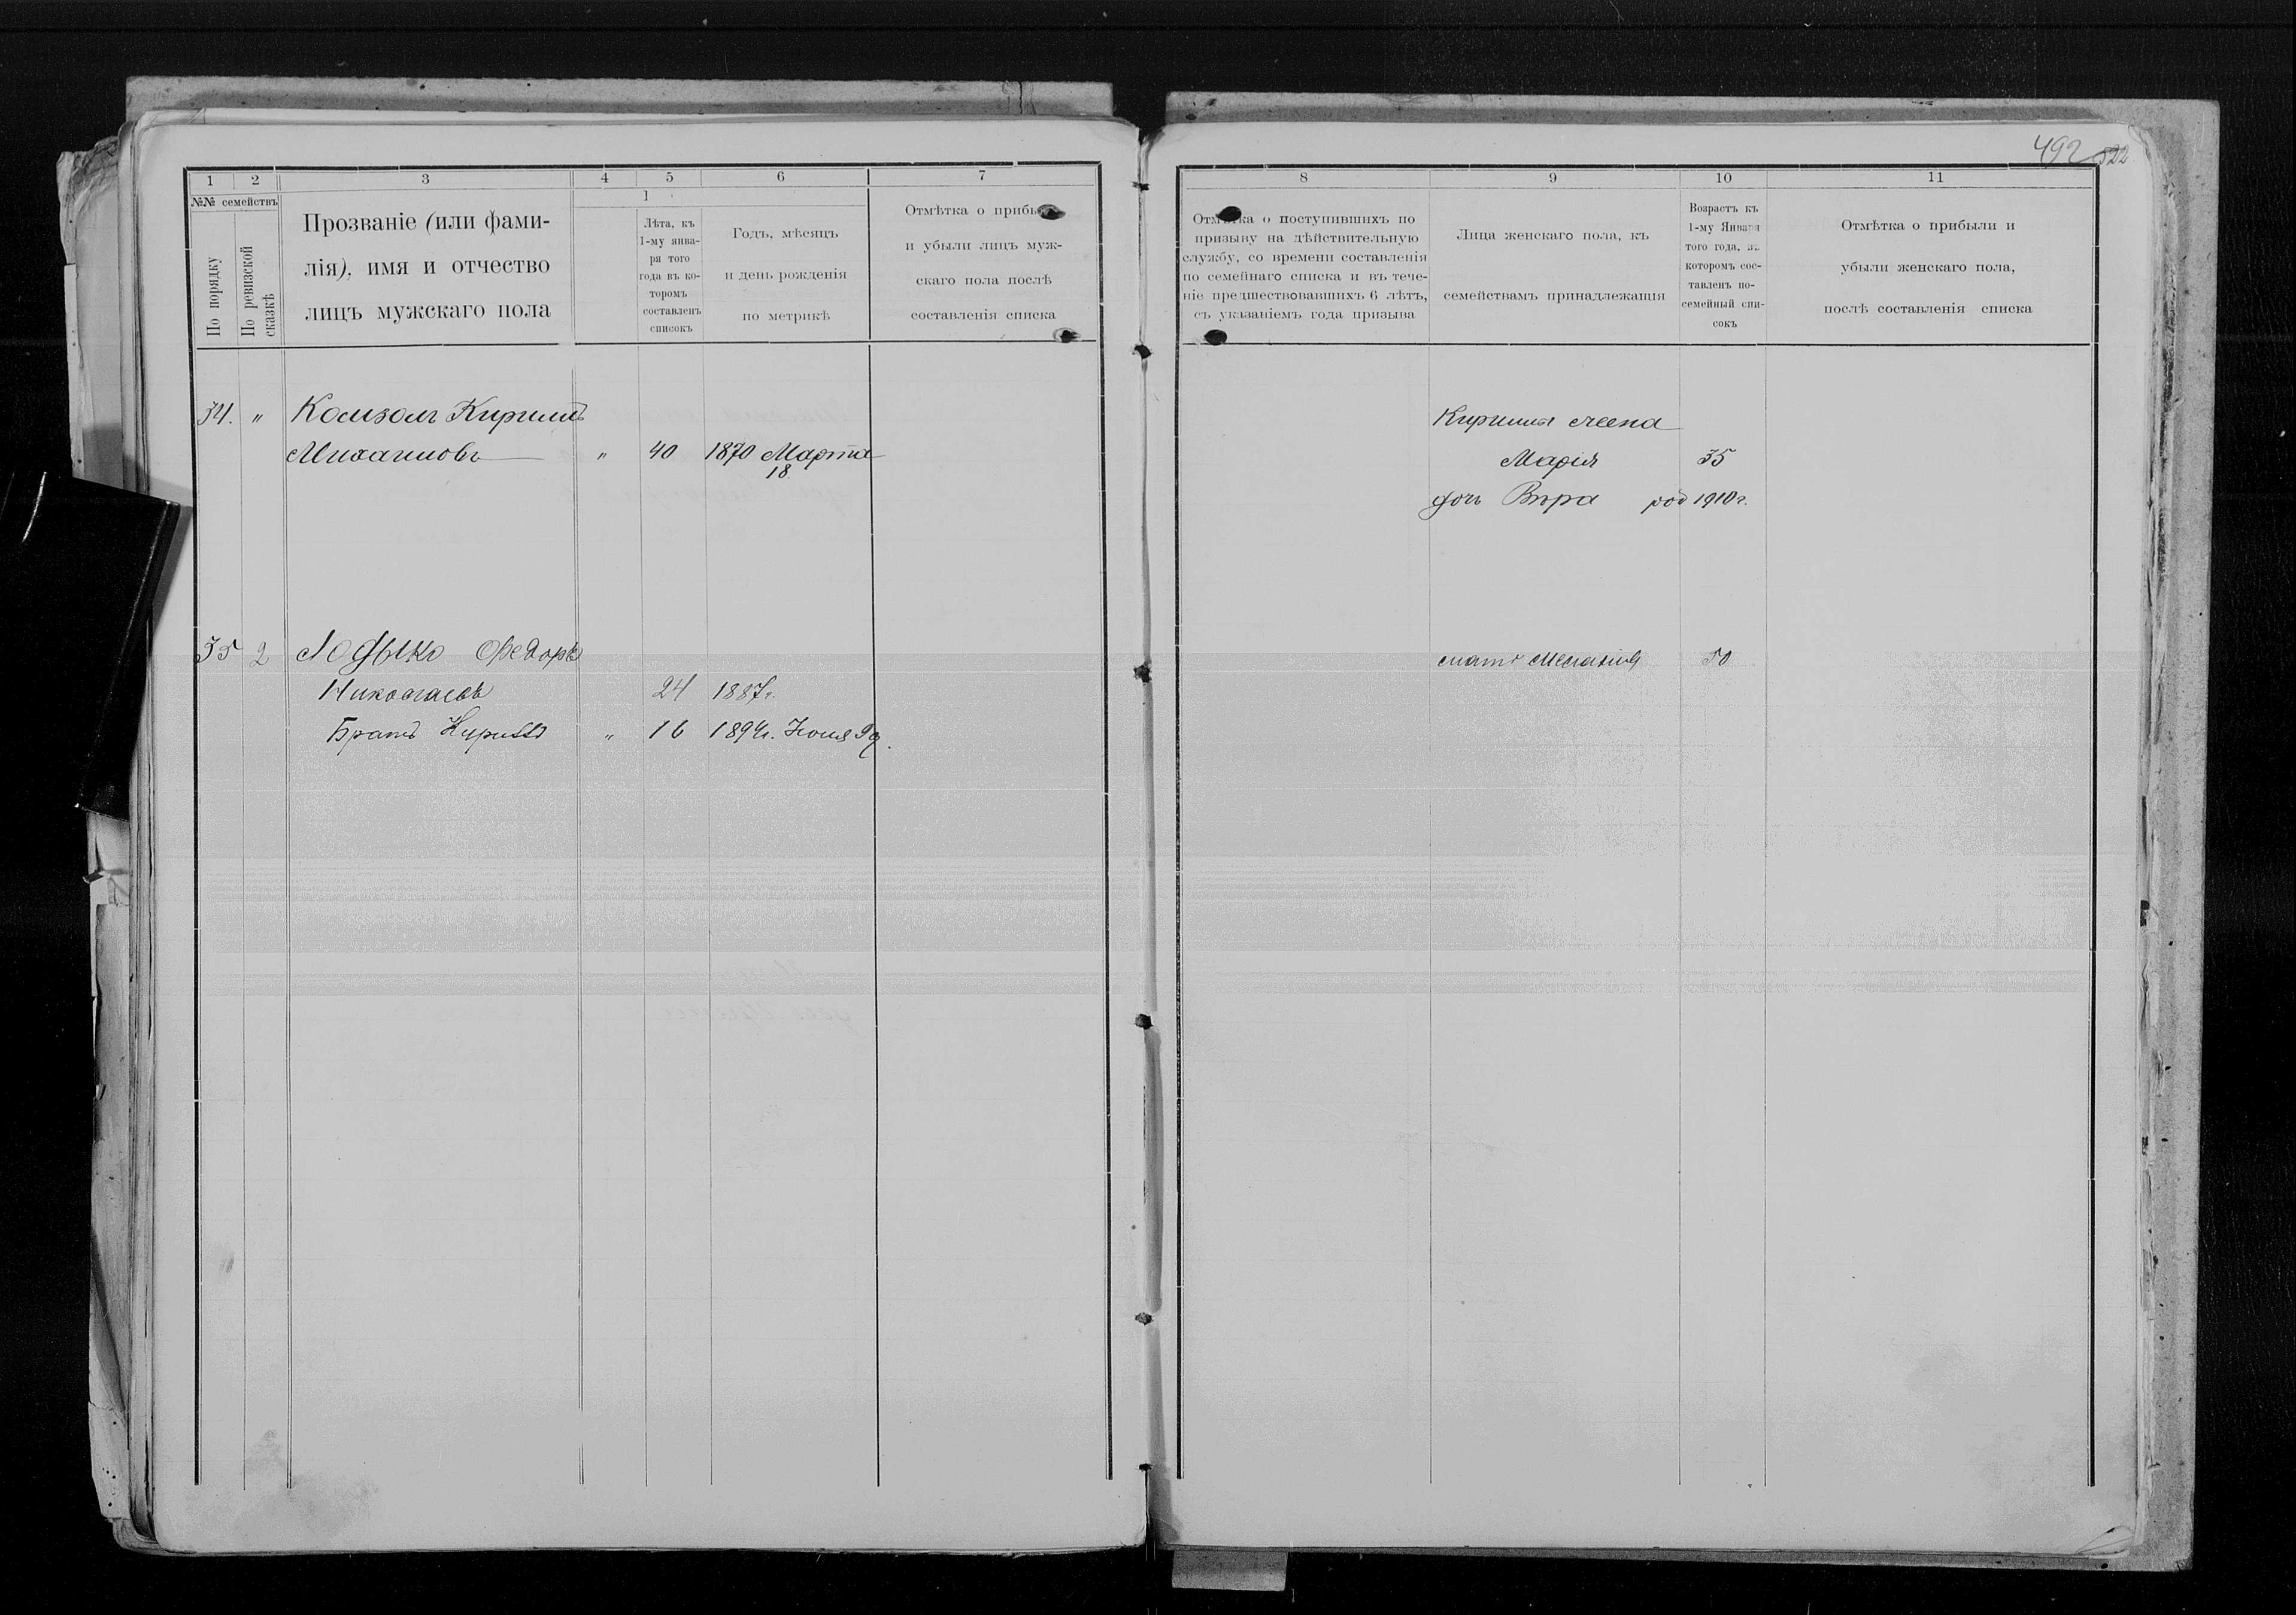 492 522
1 2 3 4 5 6 7
№№ семействъ
По порядку
По ревизской сказкѣ
Прозваніе (или фами-
лія), имя и отчество
лицъ мужскаго пола
1
Лѣта, къ
1-му янва-
ря того
года въ ко-
торомъ
составленъ
списокъ
Годъ, мѣсяцъ
и день рожденія
по метрикѣ
Отмѣтка о прибы
и убыли лицъ муж-
скаго пола послѣ
составленія списка
34. " Кириллъ
Михаиловъ " 40 1870 Марта
18
35 2 Лодыко Федоръ
Николаевъ 24 1887г.
Братъ " 16 1894г. Іюня 9д.
8 9 10 11
Отмѣтка о поступившихъ по
призыву на дѣйствительную
службу, со времени составленія
по семейнаго списка и въ тече-
ніе предшествовавшихъ 6 лѣтъ,
съ указаніемъ года призыва
Лица женскаго пола, къ
семействамъ принадлежащія
Возрастъ къ
1-му Января
того года, въ
которомъ сос-
тавленъ по-
семейный спи-
сокъ
Отмѣтка о прибыли и
убыли женскаго пола,
послѣ составленія списка
Кирилла жена
Марія 35
дочь Вѣра род 1910г.
мать Меланія 50